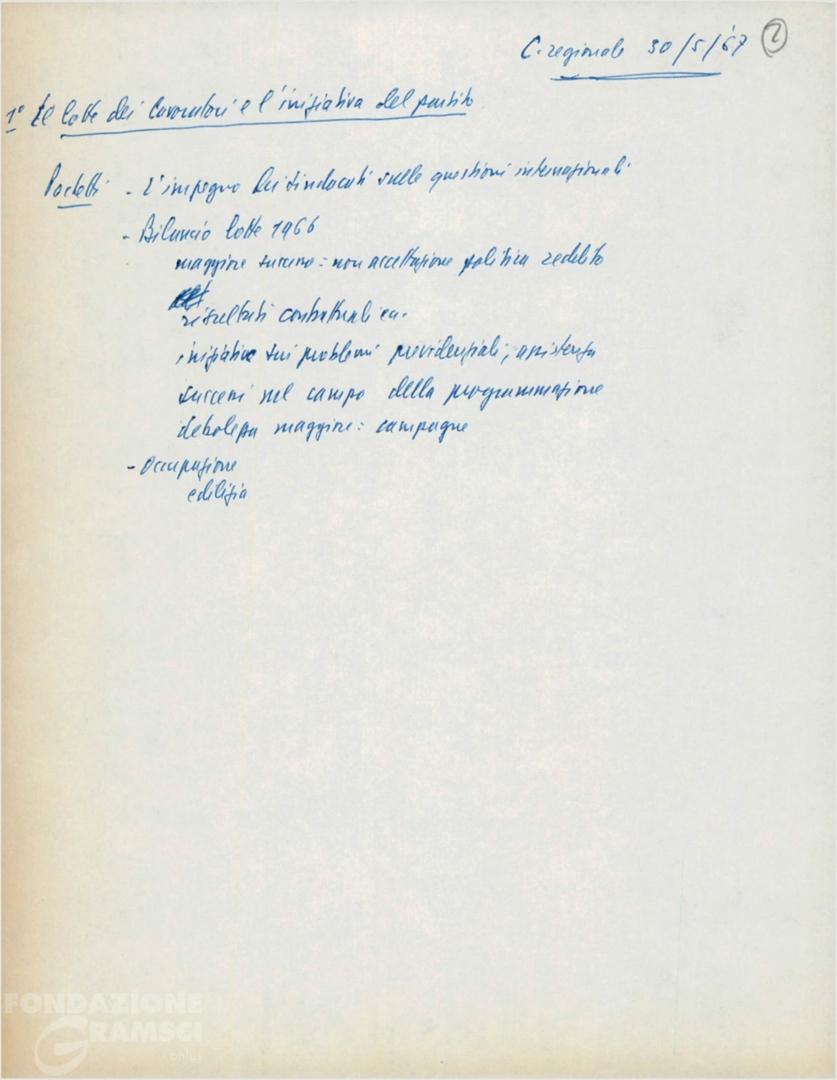 C. regionale 30/5/'67 2
1° Le lotte dei lavoratori e l'iniziativa del partito
- L'impegno dei sindacati sulle questioni internazionali
- Bilancio lotte 1966
maggiore successo: non accettazione politica redditi
risultati contrattuali
iniziative sui problemi previdenziali, assistenza
successi nel campo della programmazione
debolezza maggiore: campagne
- Occupazione
edilizia
FONDAZIONE
GRAMSCI
onlus